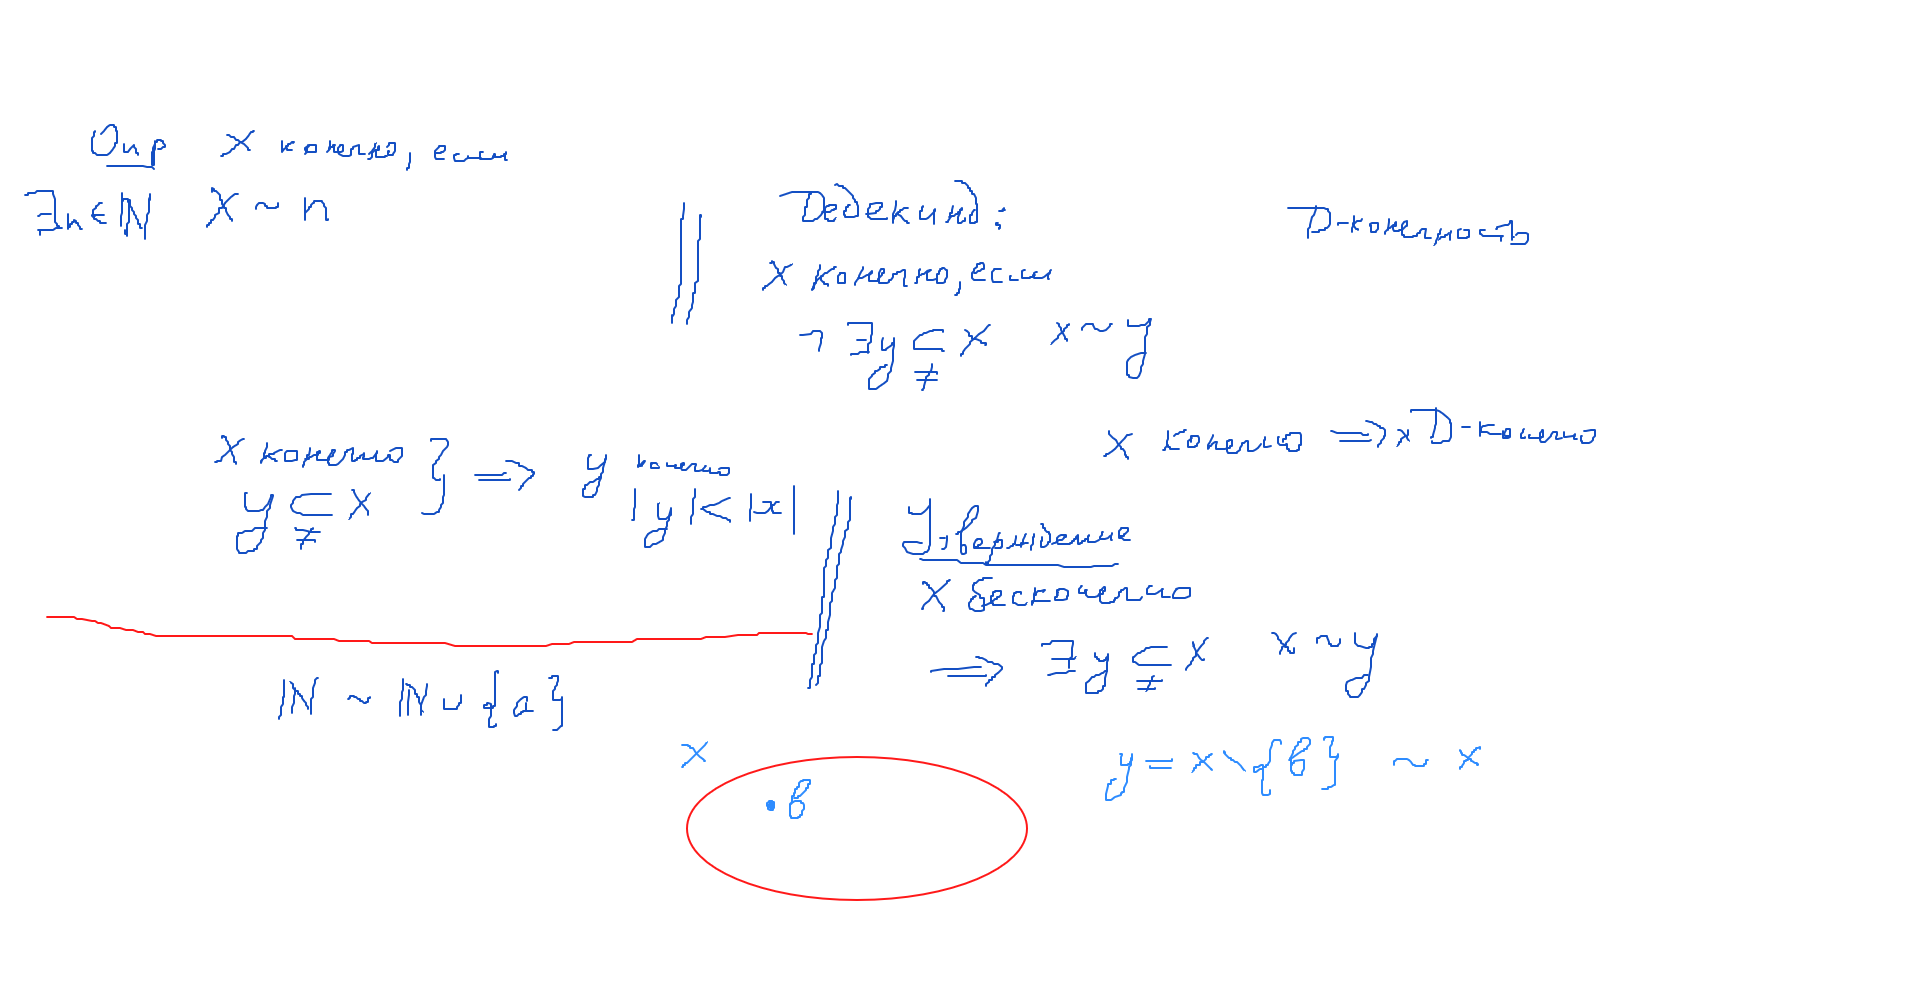 Опр X конечно, если
∃n∈ℕ X ~ n
Дедекинд:
X конечно, если
¬∃y⊊X x~y
D-конечность
X конечно } ⟹ y конечно
y⊊X |y|<|x|
X конечно ⟹ x D-конечно
Утверждение
X бесконечно
⟹ ∃y⊊X x~y
ℕ ~ ℕ∪{a}
x
• b
y = x∖{b} ~ x